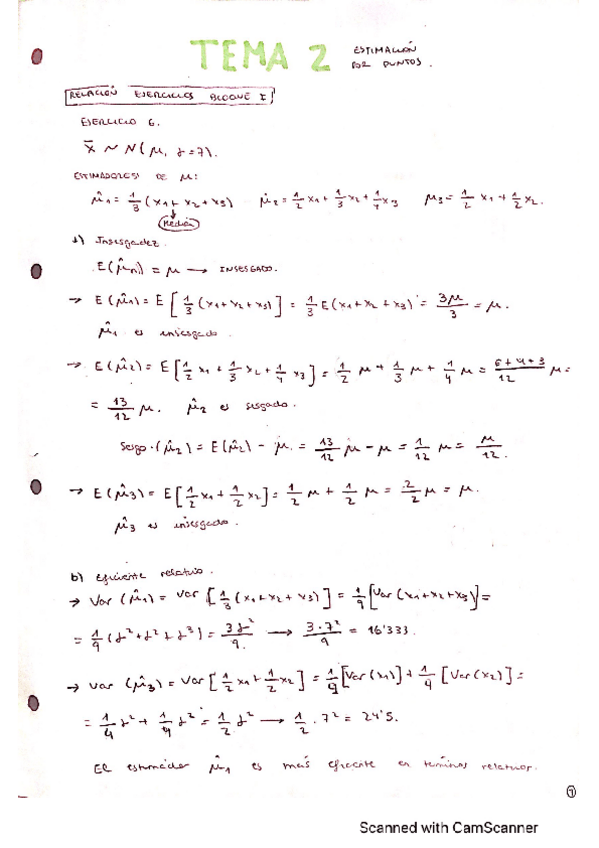 TEMA 2 ESTIMACIÓN POR PUNTOS.
RELACIÓN EJERCICIOS BLOQUE I
EJERCICIO 6.
x̄ ~ N(μ, σ=7).
ESTIMADORES DE μ:
μ̂1 = 1/3 (x1 + x2 + x3) μ̂2 = 1/2 x1 + 1/3 x2 + 1/4 x3 μ3 = 1/2 x1 + 1/2 x2.
a) Insesgadez.
E(μ̂n) = μ → INSESGADO.
→ E(μ̂1) = E[1/3 (x1+x2+x3)] = 1/3 E(x1+x2+x3) = 3μ/3 = μ.
μ̂1 es insesgado.
→ E(μ̂2) = E[1/2 x1 + 1/3 x2 + 1/4 x3] = 1/2 μ + 1/3 μ + 1/4 μ = 6+4+3/12 μ =
= 13/12 μ. μ̂2 es sesgado.
Sesgo.(μ̂2) = E(μ̂2) - μ = 13/12 μ - μ = 1/12 μ = μ/12.
→ E(μ̂3) = E[1/2 x1 + 1/2 x2] = 1/2 μ + 1/2 μ = 2/2 μ = μ.
μ̂3 es insesgado.
b) eficiente relativo.
→ Var(μ̂1) = Var[1/3 (x1+x2+x3)] = 1/9 [Var(x1+x2+x3)] =
= 1/9 (σ²+σ²+σ³) = 3σ²/9. → 3·7²/9 = 16'333.
→ Var(μ̂3) = Var[1/2 x1 + 1/2 x2] = 1/9 [Var(x1)] + 1/9 [Var(x2)] =
= 1/4 σ² + 1/4 σ² = 1/2 σ² → 1/2 · 7² = 24'5.
El estimador μ̂1 es más eficiente en términos relativos.
1
Scanned with CamScanner